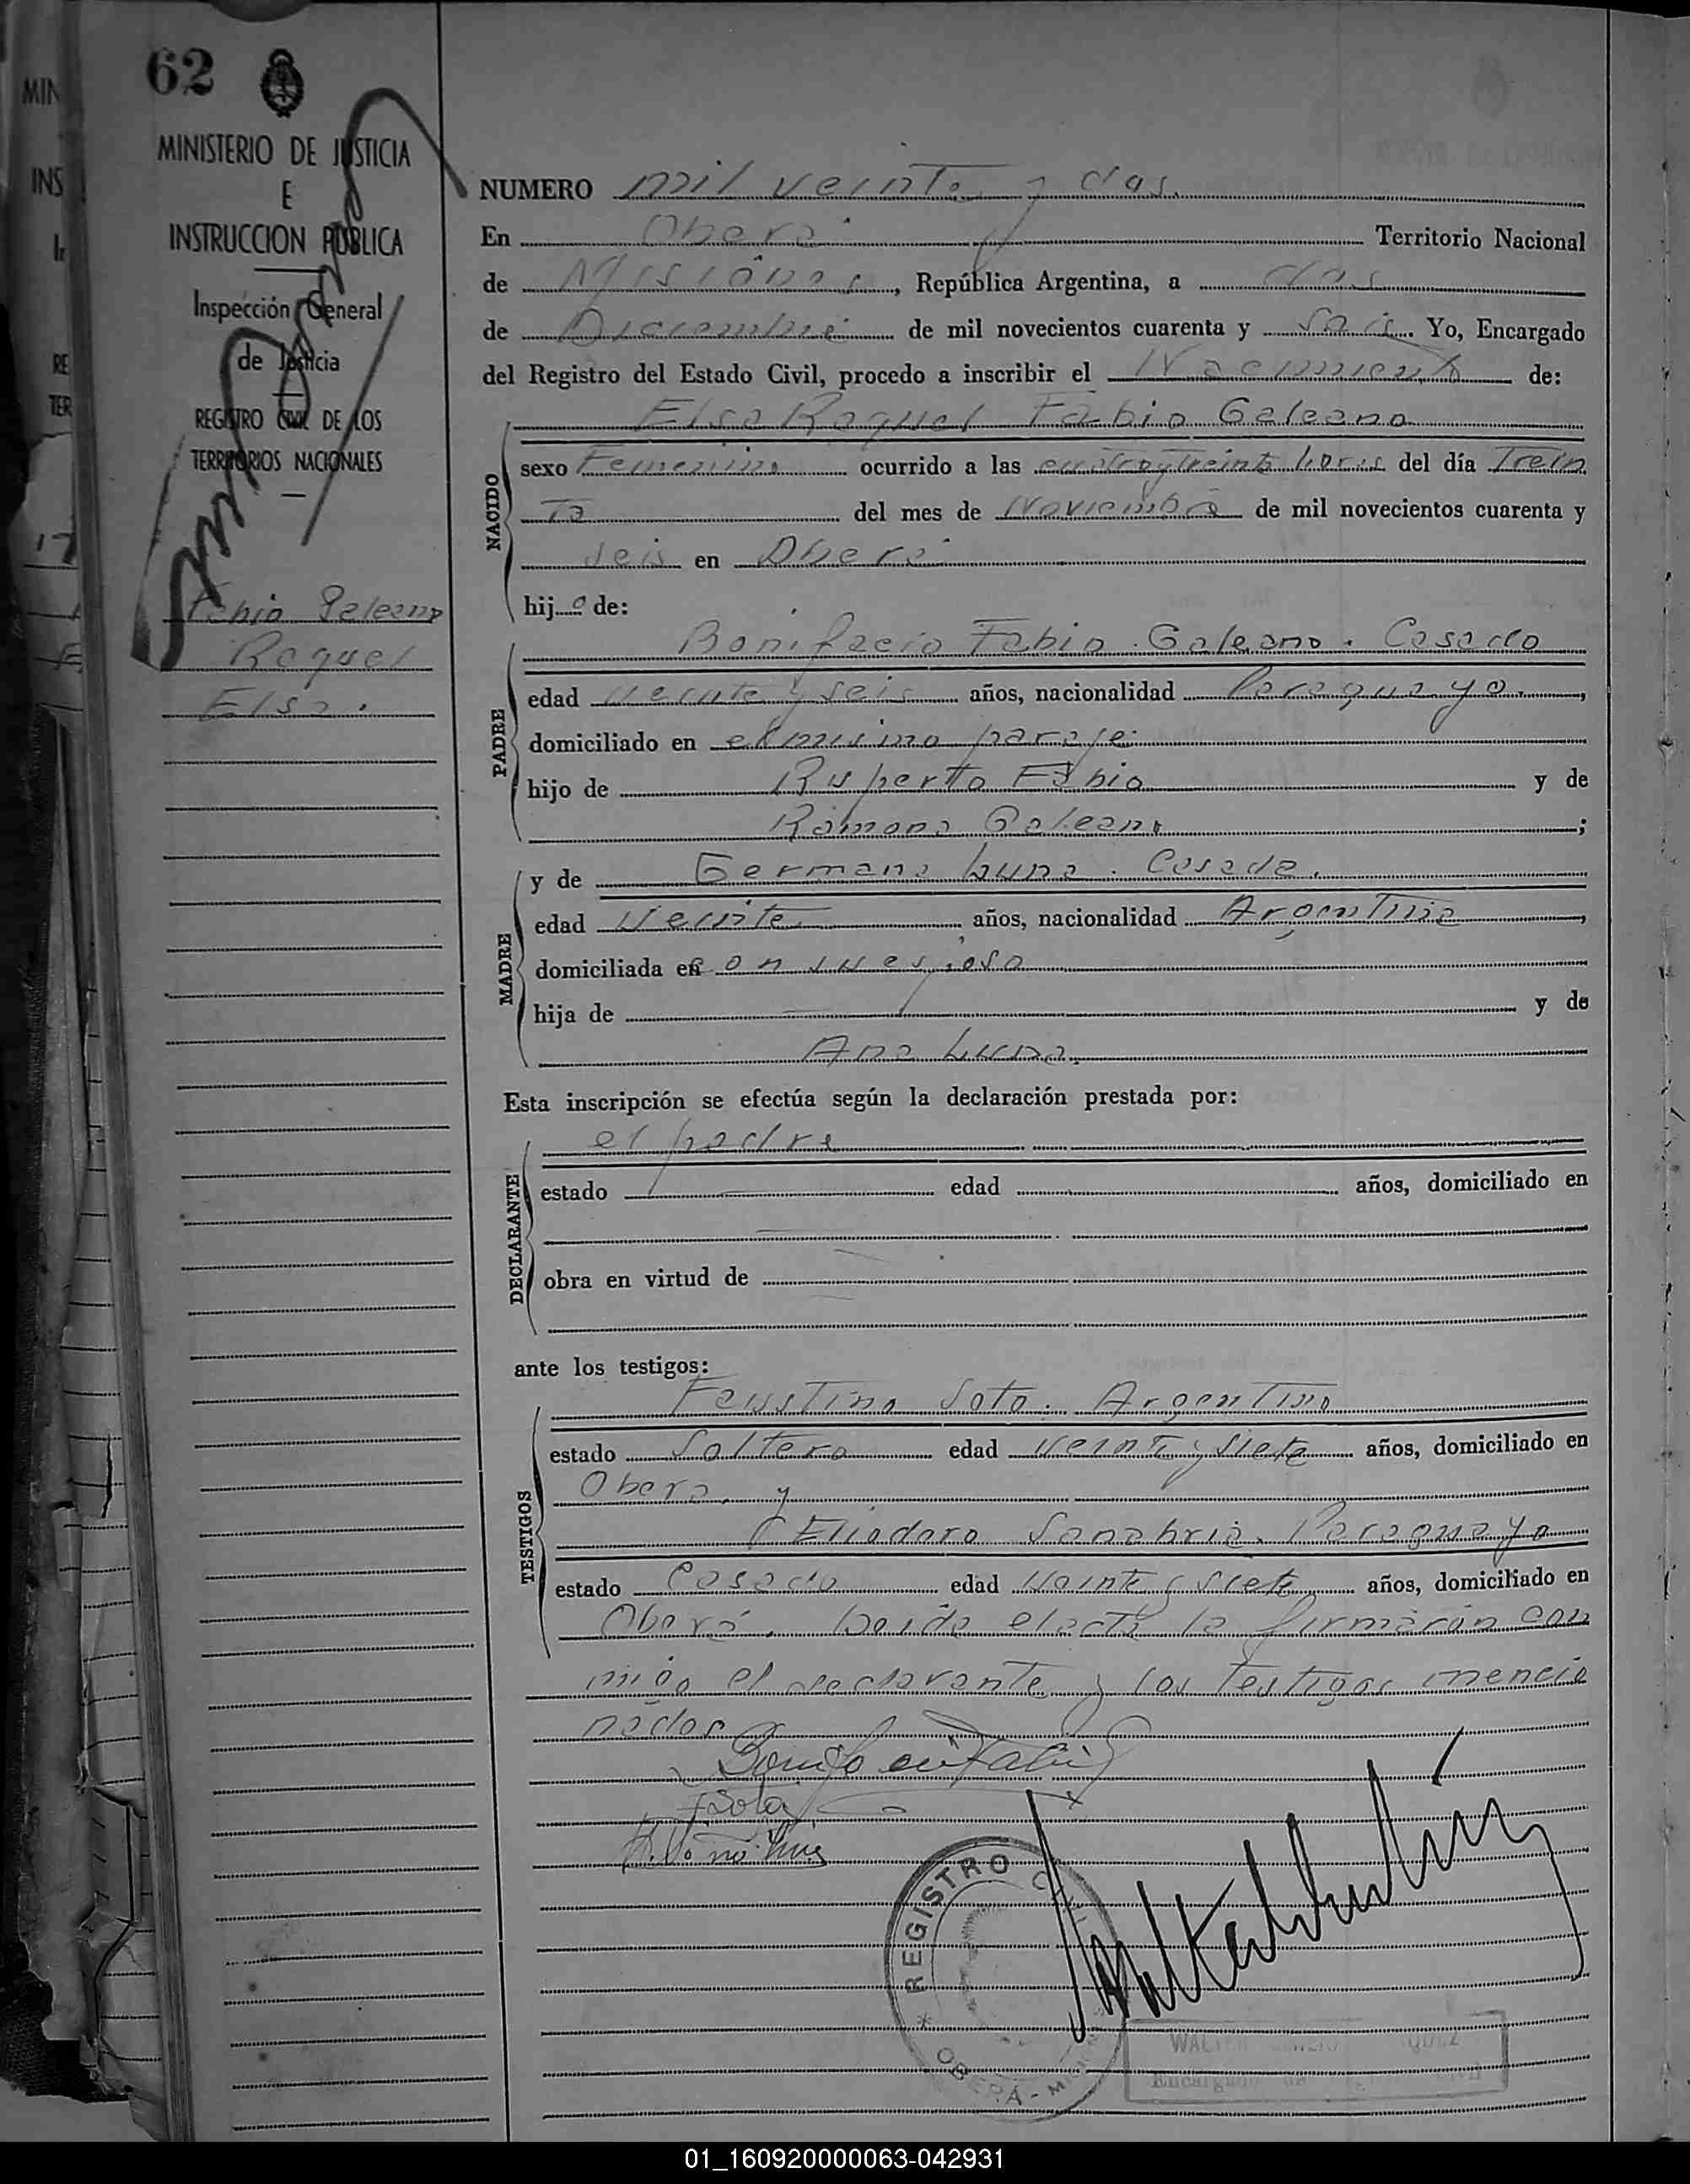 62
MINISTERIO DE JUSTICIA
E
INSTRUCCION PUBLICA
Inspección General
de Justicia
REGISTRO CIVIL DE LOS
TERRITORIOS NACIONALES
Fabio Galeano
Raquel
Elsa.
NUMERO mil veinte y dos.
En Oberá Territorio Nacional
de Misiones, República Argentina, a dos
de Diciembre de mil novecientos cuarenta y seis. Yo, Encargado
del Registro del Estado Civil, procedo a inscribir el Nacimiento de:
NACIDO
Elsa Raquel Fabio Galeano
sexo Femenino ocurrido a las cuatro y treinta horas del día Trein
ta del mes de Noviembre de mil novecientos cuarenta y
seis en Oberá
hija de:
PADRE
Bonifacio Fabio Galeano. Casado
edad veinte y seis años, nacionalidad Paraguayo.,
domiciliado en el mismo paraje.
hijo de Ruperto Fabio y de
Ramona Galeano;
MADRE
y de Germana Luna. Casada.
edad Veinte años, nacionalidad Argentina,
domiciliada con su esposo
hija de y de
Ana Luna.
Esta inscripción se efectúa según la declaración prestada por:
DECLARANTE
el padre
estado edad años, domiciliado en
obra en virtud de
ante los testigos:
TESTIGOS
Faustino Soto. Argentino
estado Soltero edad veinte y siete años, domiciliado en
Oberá, y
Eliodoro Sanabria. Paraguayo
estado Casado edad Veinte y siete años, domiciliado en
Oberá. Leida el acta la firmarón con
migo el declarante y los testigos mencio
nados
REGISTRO CIVIL
OBERÁ - 
WALTER
Encargado de Civil
01_160920000063-042931